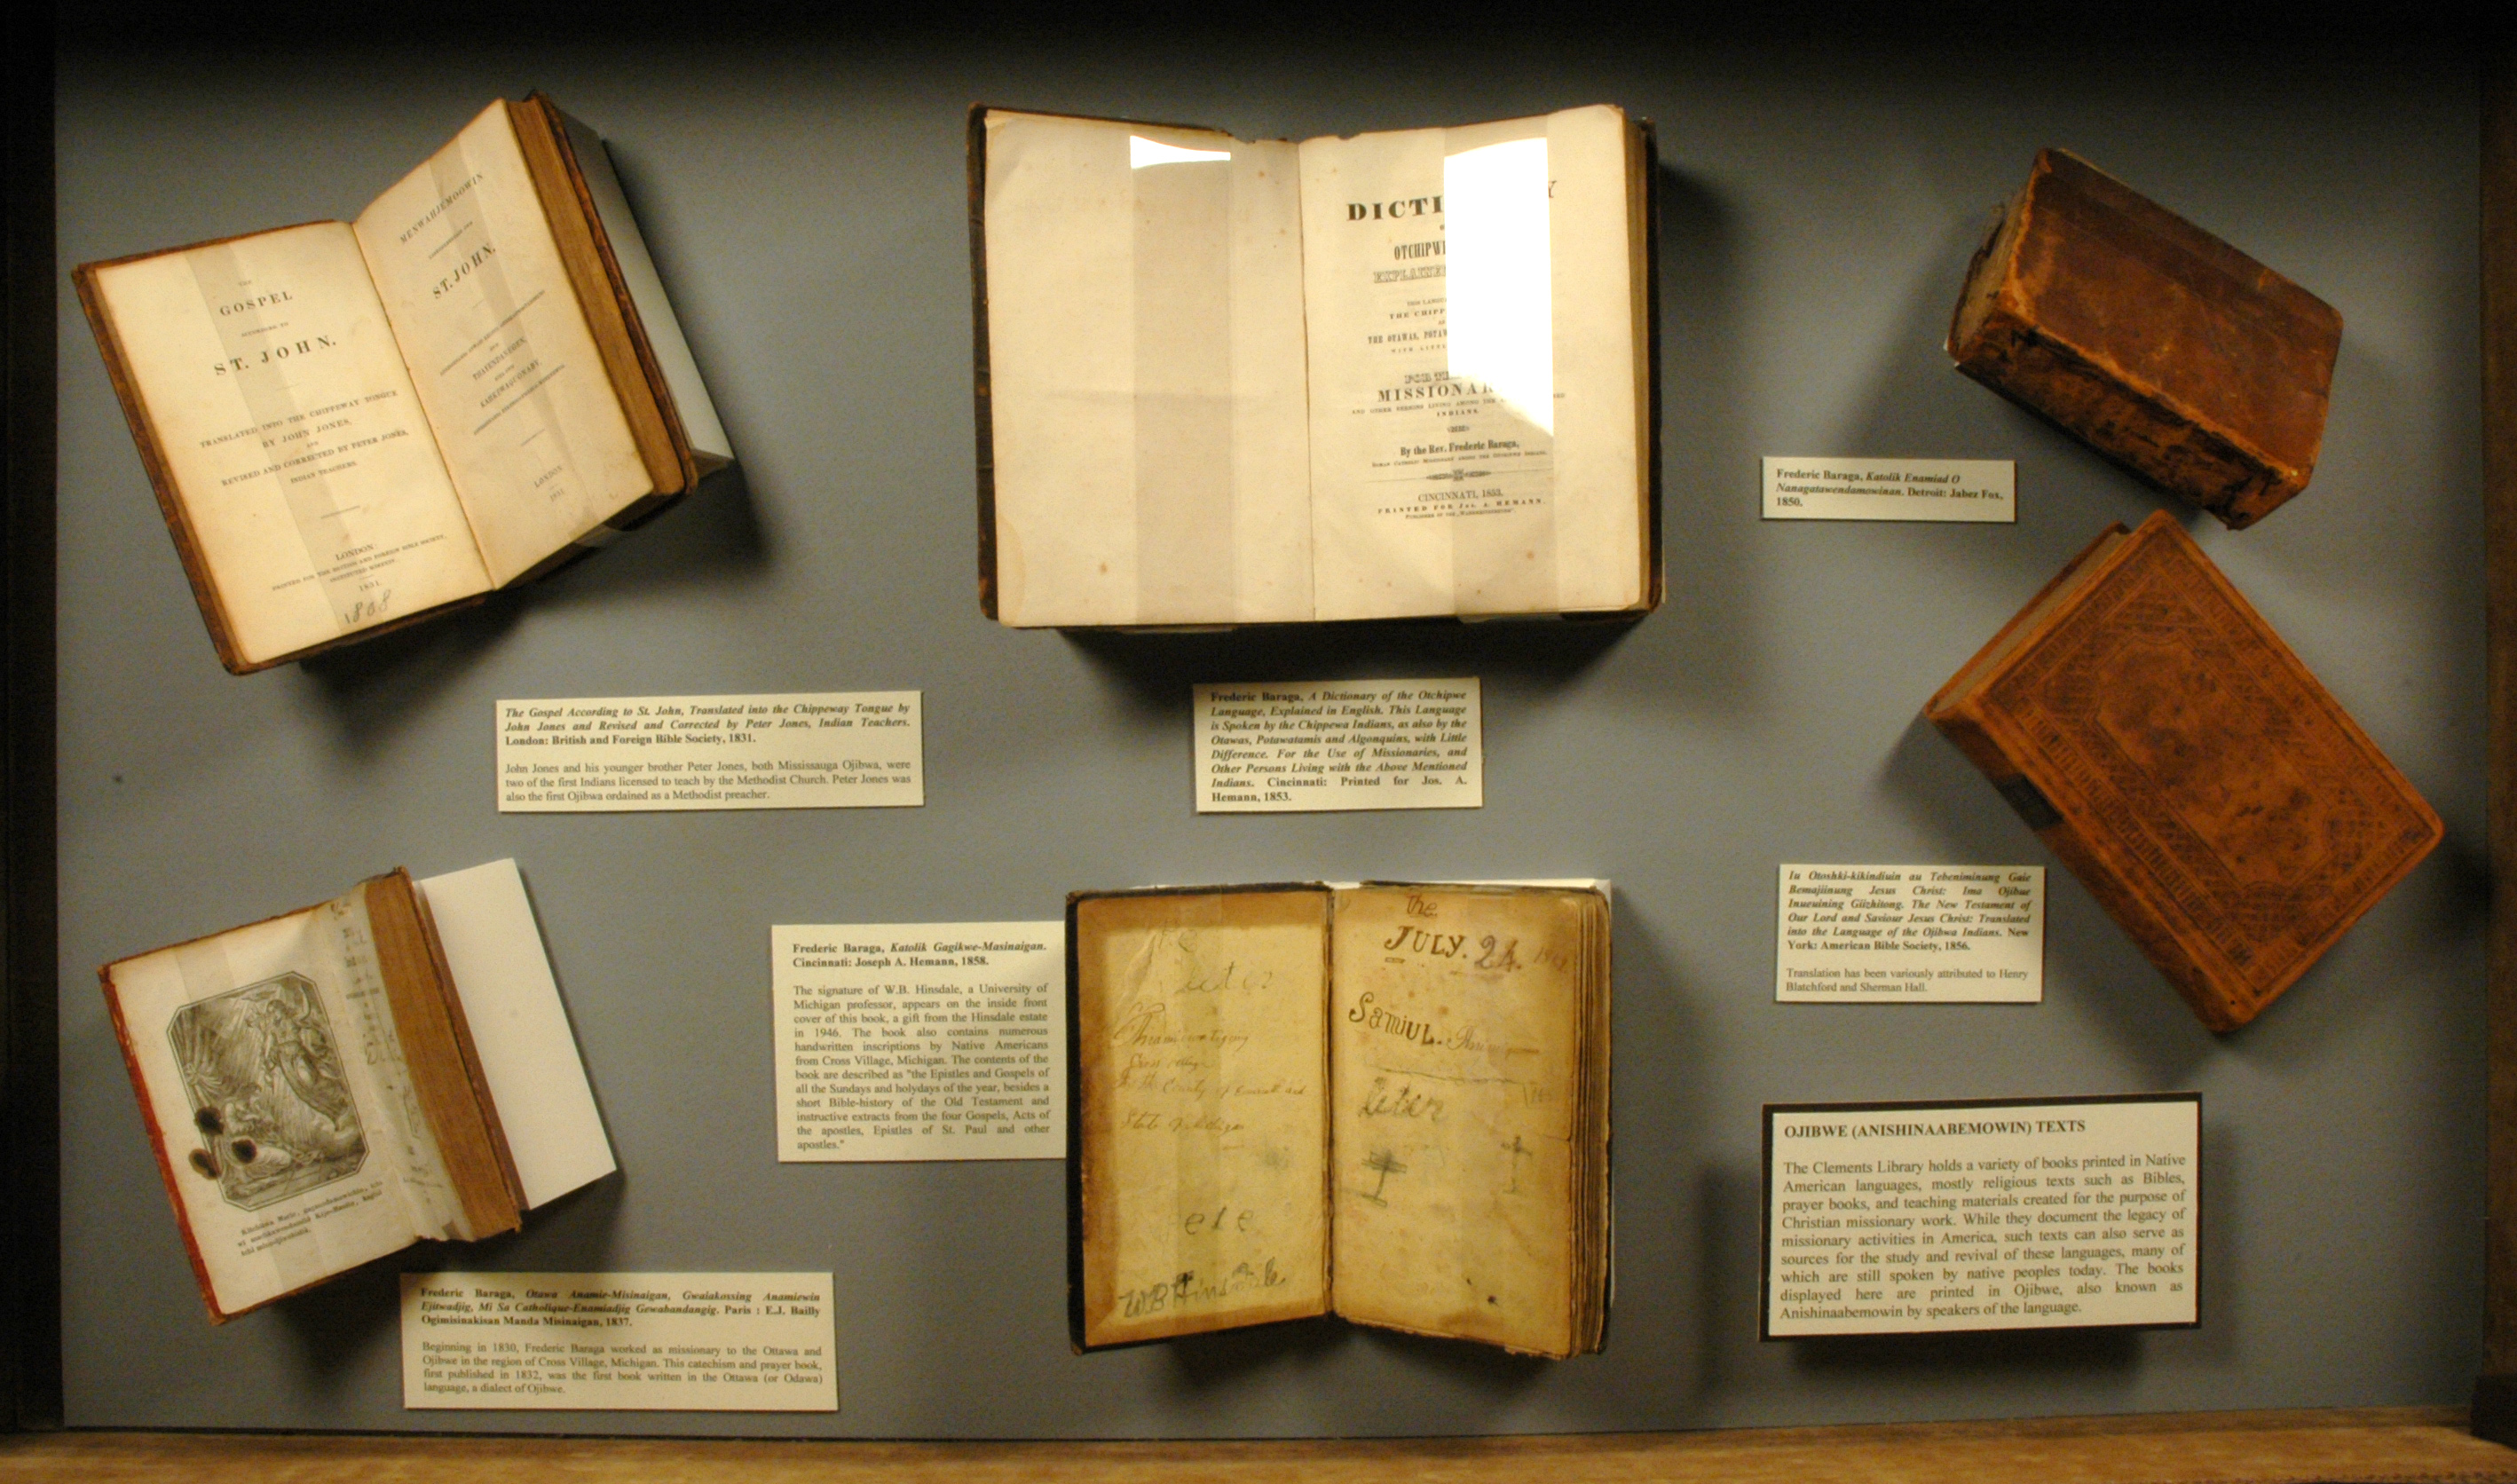 THE
GOSPEL
ACCORDING TO
ST. JOHN.
TRANSLATED INTO THE CHIPPEWAY TONGUE
BY JOHN JONES,
AND
REVISED AND CORRECTED BY PETER JONES,
INDIAN TEACHERS.
LONDON
PRINTED FOR THE BRITISH AND FOREIGN BIBLE SOCIETY,
1831.
1868
MENWAHJEMOOWIN
ST. JOHN.
THAYENDANEGEN,
KAHKEWAQUONABY,
LONDON
1831
The Gospel According to St. John, Translated into the Chippeway Tongue by
John Jones and Revised and Corrected by Peter Jones, Indian Teachers.
London: British and Foreign Bible Society, 1831.
John Jones and his younger brother Peter Jones, both Mississauga Ojibwa, were
two of the first Indians licensed to teach by the Methodist Church. Peter Jones was
also the first Ojibwa ordained as a Methodist preacher.
DICTI Y
OTCHIPWE
EXPLAINE
THIS LANGU
THE CHIPP
THE OTAWAS, POTAW
WITH LITTL
FOR THE
MISSIONAR
AND OTHER PERSONS LIVING AMONG THE
INDIANS.
By the Rev. Frederic Baraga,
ROMAN CATHOLIC MISSIONARY AMONG THE OTCHIPWE INDIANS.
CINCINNATI, 1853.
PRINTED FOR Jos. A. HEMANN.
Frederic Baraga, A Dictionary of the Otchipwe
Language, Explained in English. This Language
is Spoken by the Chippewa Indians, as also by the
Otawas, Potawatamis and Algonquins, with Little
Difference. For the Use of Missionaries, and
Other Persons Living with the Above Mentioned
Indians. Cincinnati: Printed for Jos. A.
Hemann, 1853.
Frederic Baraga, Katolik Enamiad O
Nanagatawendamowinan. Detroit: Jabez Fox,
1850.
Iu Otoshki-kikindiuin au Tebeniminung Gaie
Bemajiinung Jesus Christ: Ima Ojibue
Inueuining Giizhitong. The New Testament of
Our Lord and Saviour Jesus Christ: Translated
into the Language of the Ojibwa Indians. New
York: American Bible Society, 1856.
Translation has been variously attributed to Henry
Blatchford and Sherman Hall.
Frederic Baraga, Otawa Anamie-Misinaigan, Gwaiakossing Anamiewin
Ejitwadjig, Mi Sa Catholique-Enamiadjig Gewabandangig. Paris : E.J. Bailly
Ogimisinakisan Manda Misinaigan, 1837.
Beginning in 1830, Frederic Baraga worked as missionary to the Ottawa and
Ojibwe in the region of Cross Village, Michigan. This catechism and prayer book,
first published in 1832, was the first book written in the Ottawa (or Odawa)
language, a dialect of Ojibwe.
Frederic Baraga, Katolik Gagikwe-Masinaigan.
Cincinnati: Joseph A. Hemann, 1858.
The signature of W.B. Hinsdale, a University of
Michigan professor, appears on the inside front
cover of this book, a gift from the Hinsdale estate
in 1946. The book also contains numerous
handwritten inscriptions by Native Americans
from Cross Village, Michigan. The contents of the
book are described as "the Epistles and Gospels of
all the Sundays and holydays of the year, besides a
short Bible-history of the Old Testament and
instructive extracts from the four Gospels, Acts of
the apostles, Epistles of St. Paul and other
apostles."
State of Michigan
ete
WB Hinsdale
the
JULY. 24.
SamiuL.
leter
OJIBWE (ANISHINAABEMOWIN) TEXTS
The Clements Library holds a variety of books printed in Native
American languages, mostly religious texts such as Bibles,
prayer books, and teaching materials created for the purpose of
Christian missionary work. While they document the legacy of
missionary activities in America, such texts can also serve as
sources for the study and revival of these languages, many of
which are still spoken by native peoples today. The books
displayed here are printed in Ojibwe, also known as
Anishinaabemowin by speakers of the language.